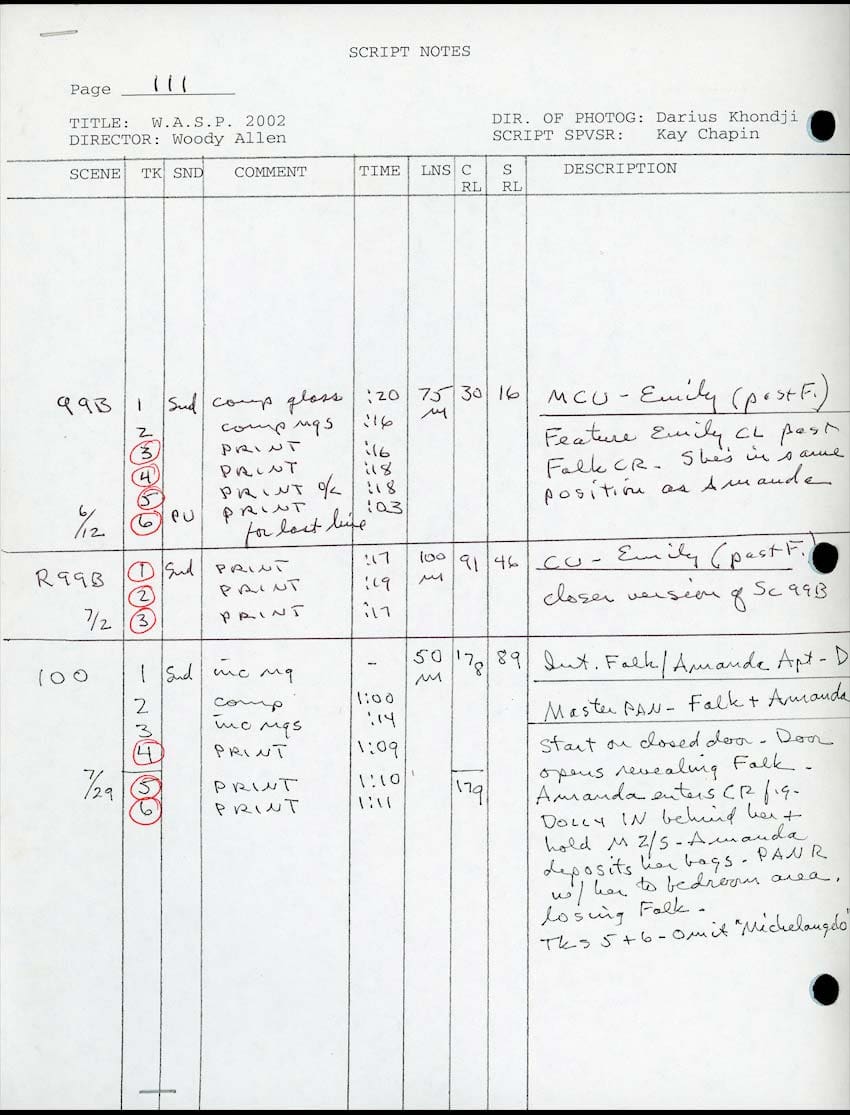 SCRIPT NOTES
Page 111
TITLE: W.A.S.P. 2002 DIR. OF PHOTOG: Darius Khondji
DIRECTOR: Woody Allen SCRIPT SPVSR: Kay Chapin
SCENE TK SND COMMENT TIME LNS C RL S RL DESCRIPTION
99B 1 Snd comp gloss :20 75 M 30 16 MCU - Emily (past F.)
2 comp mgs :16
3 PRINT :16 Feature Emily CL past
4 PRINT :18 Falk CR. She's in same
5 PRINT o/c :18 position as Amanda
6/12 6 PU PRINT :03
for last line
R99B 1 Snd PRINT :17 100 M 91 46 CU - Emily (past F.)
2 PRINT :19 closer version of Sc 99B
7/2 3 PRINT :17
100 1 Snd inc mg - 50 M 178 89 Int. Falk/Amanda Apt - D
2 comp 1:00 Master PAN - Falk + Amanda
3 inc mgs :14
4 PRINT 1:09 Start on closed door - Door
7/29 5 PRINT 1:10 179 opens revealing Falk -
6 PRINT 1:11 Amanda enters CR f.g.
DOLLY IN behind her +
hold M 2/S - Amanda
deposits her bags - PAN R
w/ her to bedroom area,
losing Falk -
Tks 5 + 6 - Omit "Michelangelo"